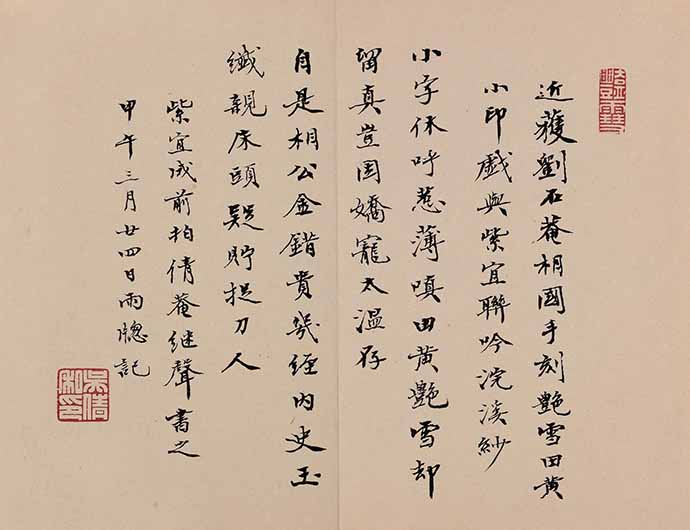 近獲劉石菴相國手刻艷雪田黃
小印戲與紫宜聯吟浣溪紗
小字休呼惹薄嗔田黃艷雪却
留真豈因嬌寵太温存
自是相公金錯貴幾經内史玉
纖親床頭疑貯捉刀人
紫宜成前拍倩菴继聲書之
甲午三月廿四日雨牕記